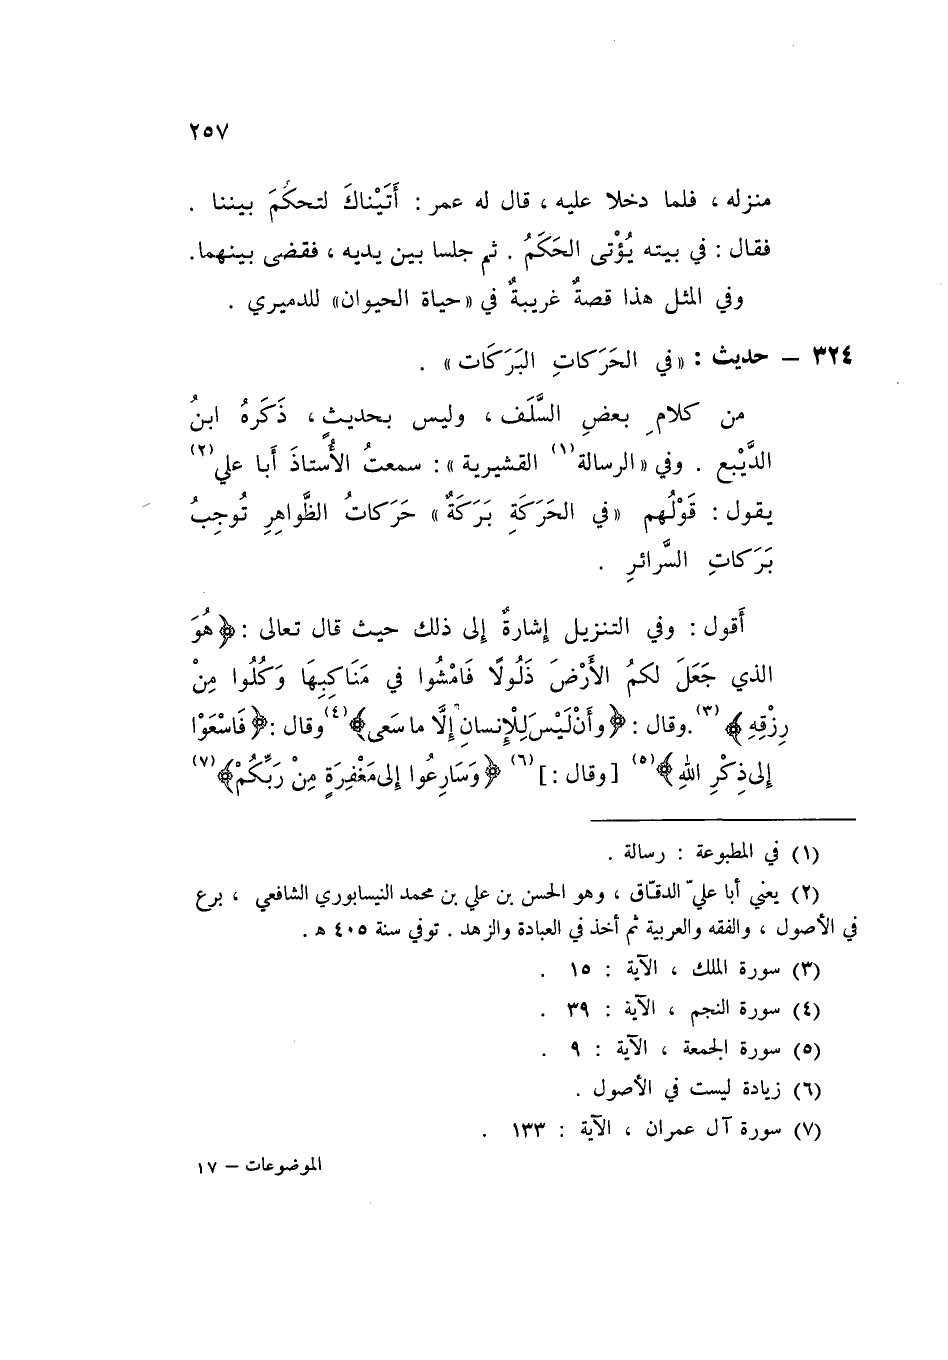 ٢٥٧
منزله ، فلما دخلا عليه ، قال له عمر : أَتَيْناكَ لتحكُمَ بيننا .
فقال : في بيته يُؤْتى الحَكَمُ . ثم جلسا بين يديه ، فقضى بينهما.
وفي المثل هذا قصةٌ غريبةٌ في «حياة الحيوان» للدميري .
٣٢٤ – حديث : «في الحَرَكاتِ البَرَكَات» .
من كلامِ بعضِ السَّلَف ، وليس بحديثٍ ، ذَكَرَهُ ابنُ
الدَّيْبع . وفي «الرسالة(١) القشيرية» : سمعتُ الأُستاذَ أَبا علي(٢)
يقول : قَوْلُهم «في الحَرَكَةِ بَرَكَةٌ» حَرَكاتُ الظَّواهِرِ تُوجِبُ
بَرَكاتِ السَّرائرِ .
أَقول : وفي التنزيل إِشارةٌ إلى ذلك حيث قال تعالى : ﴿هُوَ
الذي جَعَلَ لكمُ الأَرْضَ ذَلُولًا فَامْشُوا في مَنَاكبِهَا وَكُلُوا مِنْ
رِزْقِهِ﴾(٣) .وقال : ﴿وأَنْ لَيْسَ لِلْإِنسانِ إِلَّا ما سَعى﴾(٤) وقال : ﴿فَاسْعَوْا
إلى ذِكْرِ اللهِ﴾(٥) [وقال :](٦) ﴿وَسَارِعُوا إلى مَغْفِرَةٍ مِنْ رَبِّكُمْ﴾(٧)
(١) في المطبوعة : رسالة .
(٢) يعني أبا عليّ الدقّاق ، وهو الحسن بن علي بن محمد النيسابوري الشافعي ، برع
في الأصول ، والفقه والعربية ثم أخذ في العبادة والزهد . توفي سنة ٤٠٥ ه .
(٣) سورة الملك ، الآية : ١٥ .
(٤) سورة النجم ، الآية : ٣٩ .
(٥) سورة الجمعة ، الآية : ٩ .
(٦) زيادة ليست في الأصول .
(٧) سورة آل عمران ، الآية : ١٣٣ .
الموضوعات – ١٧